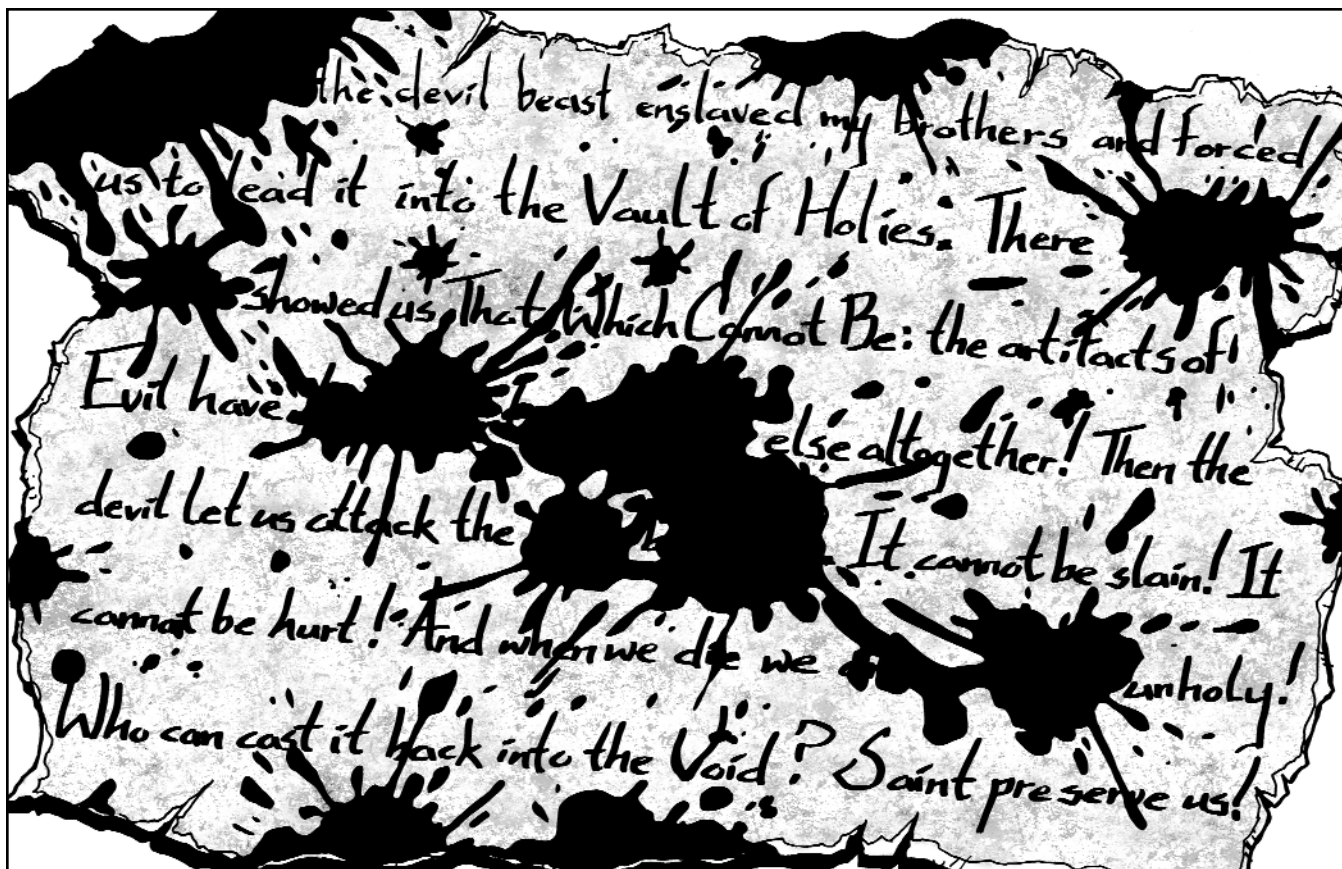 the devil beast enslaved my brothers and forced
us to lead it into the Vault of Holies. There
showed us That Which Cannot Be: the artifacts of
Evil have else altogether! Then the
devil let us attack the It cannot be slain! It
cannot be hurt! And when we die we unholy!
Who can cast it back into the Void? Saint preserve us!